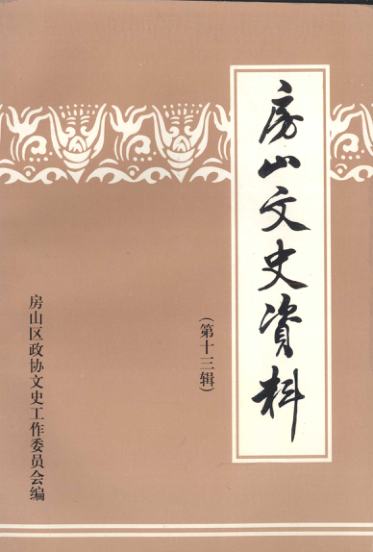 房山文史資料
(第十三辑)
房山区政协文史工作委员会编